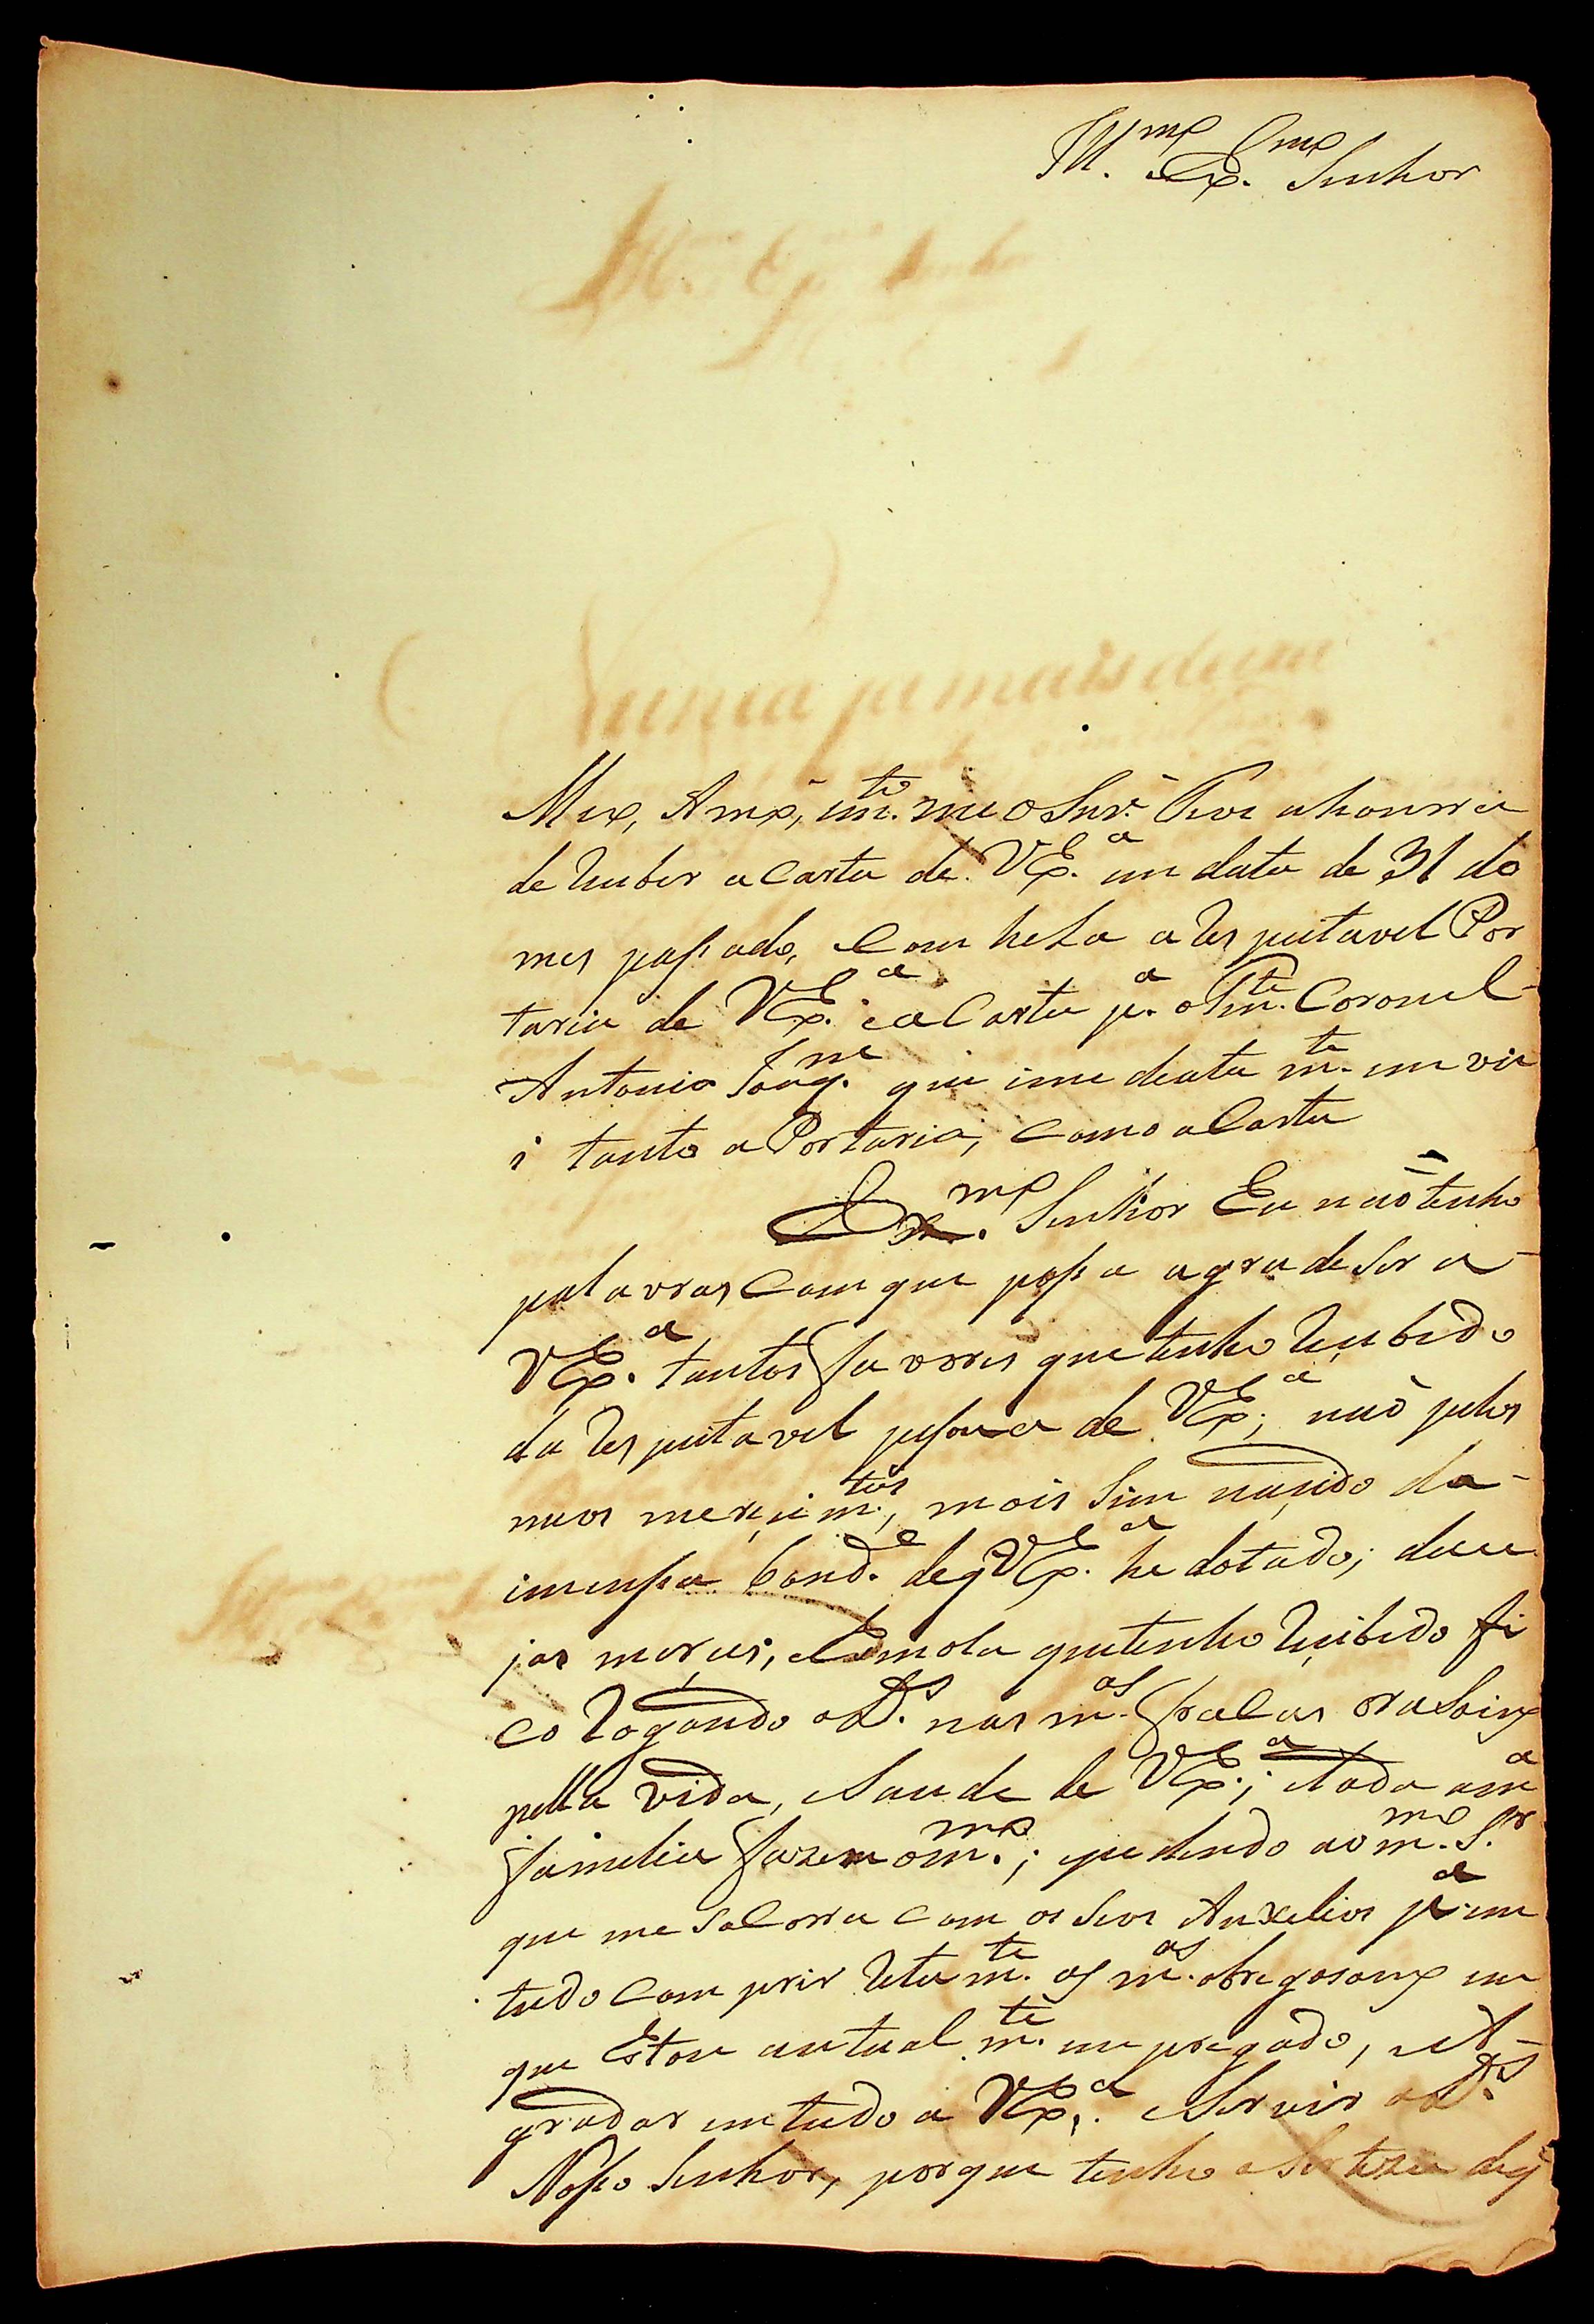 Ill.mo Ex.mo Senhor
Meo, Amo, m.to meo Snr. Tive ahonrra
de reseber acarta de VEx.a em data de 31 do
mes passado, Com hela a respeitavel Por
taria de VEx.a ea Carta p.a o Tn.te Coronel
Antonio Joaq.m que imedeata m.te emvie
i tanto a Portaria, como aCarta
Ex.mo Senhor Eu naõ tenho
palavras Com que possa agradeser a
VEx.a tantos favores que tenho resebido
da respeitavel pessoua de VEx.a; naõ pelos
meos mereçim.tos, mais sim naçido da
imenssa bond.e deq VEx.a he dotado;
merçes, e Esmola quetenho reçibido fi
co rogando aD.s nas m.as fracas orasoins
pella vida, eSaude de VEx.a; etoda am.a
familia fazem om.mo; epedindo ao m.mo S.r
que me Socorra com os Seos Auxelios p.a em
tudo Comprir reta m.te as m.as obregasoins em
que Estou autual m.te empregado, eA
gradar emtudo a VEx.a eServir aD.s
Nosso Senhor, porque tenho aSerteza deq
Nunca jamais